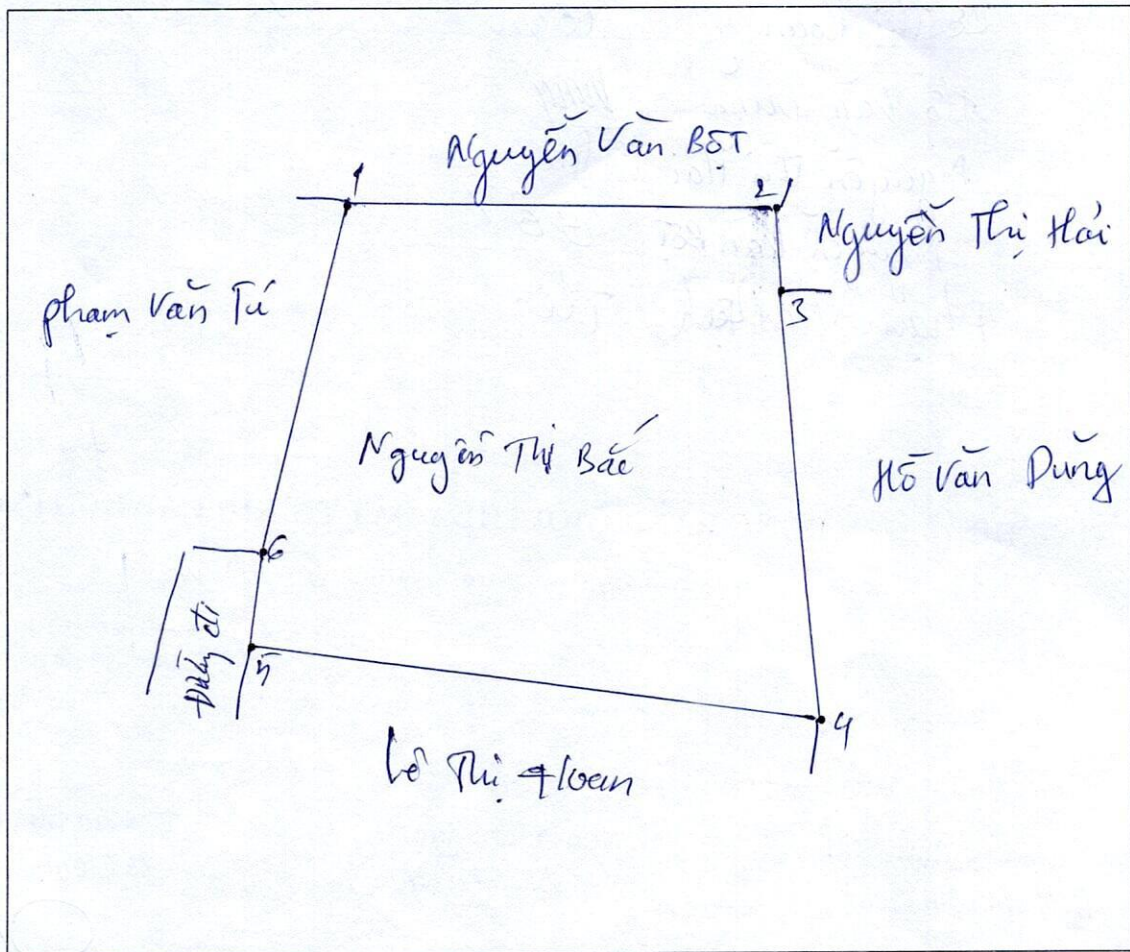 Nguyễn Văn BỐT
1
2
Nguyễn Thị Hải
phạm Văn Tú
3
Nguyễn Thị Bắc
Hồ Văn Dũng
6
Đường đi
5
4
Lê Thị Hoan